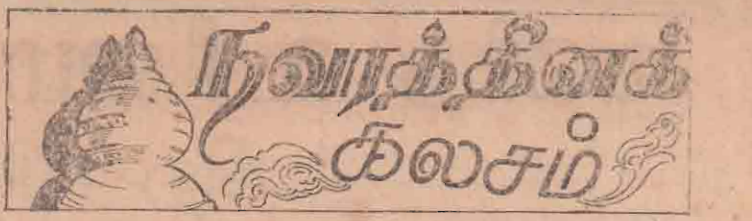 நவரத்தினக்
கலசம்